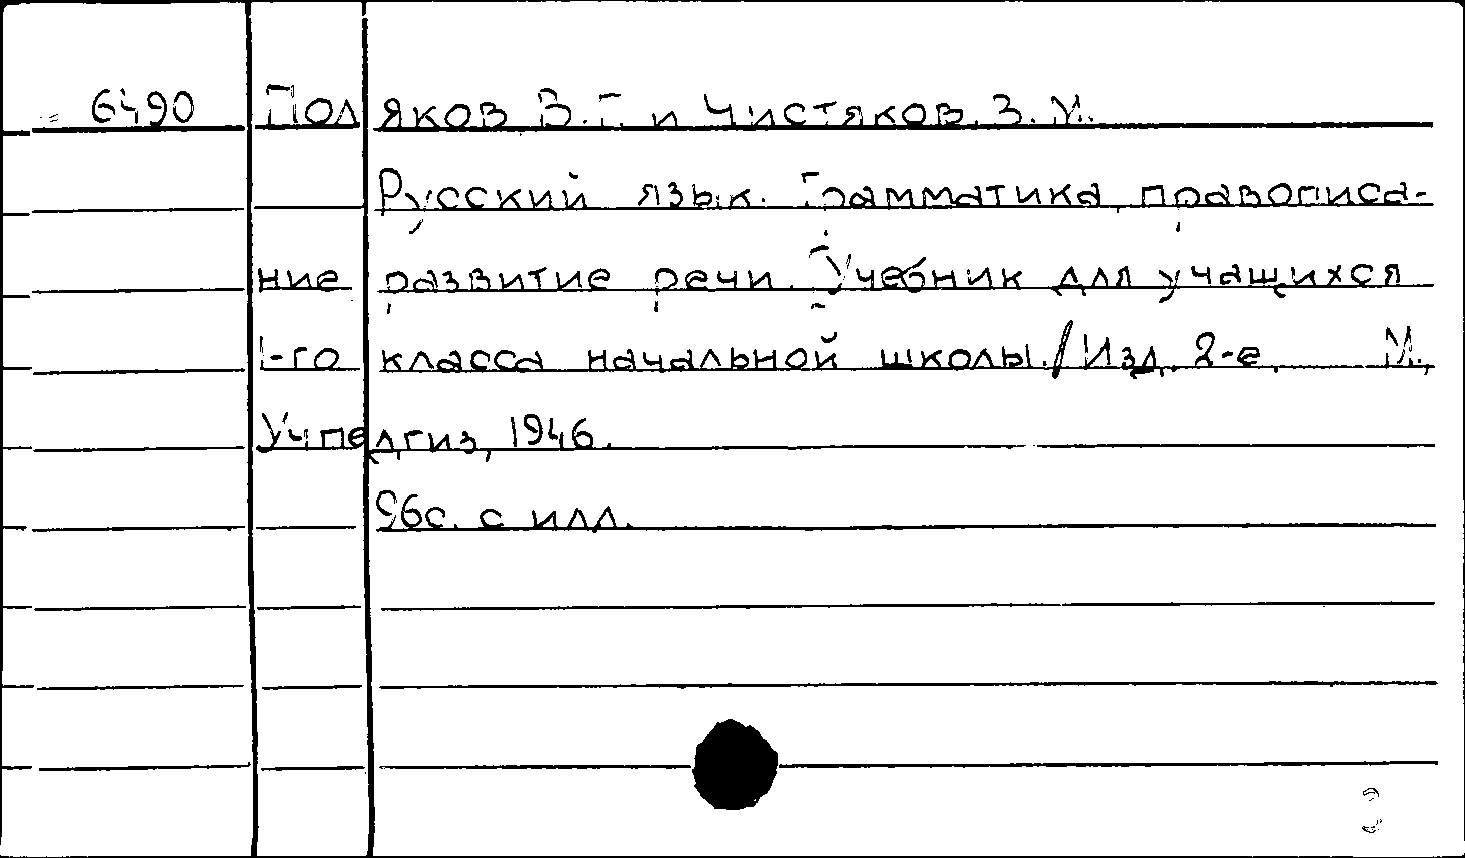 6490 Поляков В.Г. и Чистяков З.М.
Русский язык. Грамматика, правописа-
ние развитие речи. Учебник для учащихся
1-го класса начальной школы./Изд. 2-е. М.,
Учпедгиз, 1946.
96с. с илл.